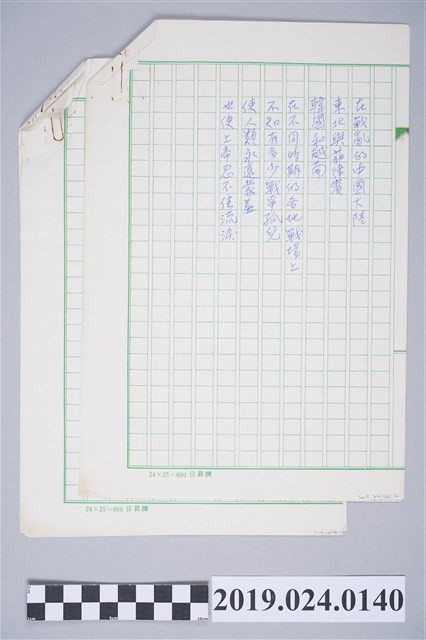 在戰亂的中國大陸
東北與菲律賓
韓國和越南
在不同時期的各地戰場上
不知有多少戰爭孤兒
使人類永遠蒙羞
也使上帝忍不住流淚
24×25=600 日昇牌
24×25=600 日昇牌
2019.024.0140